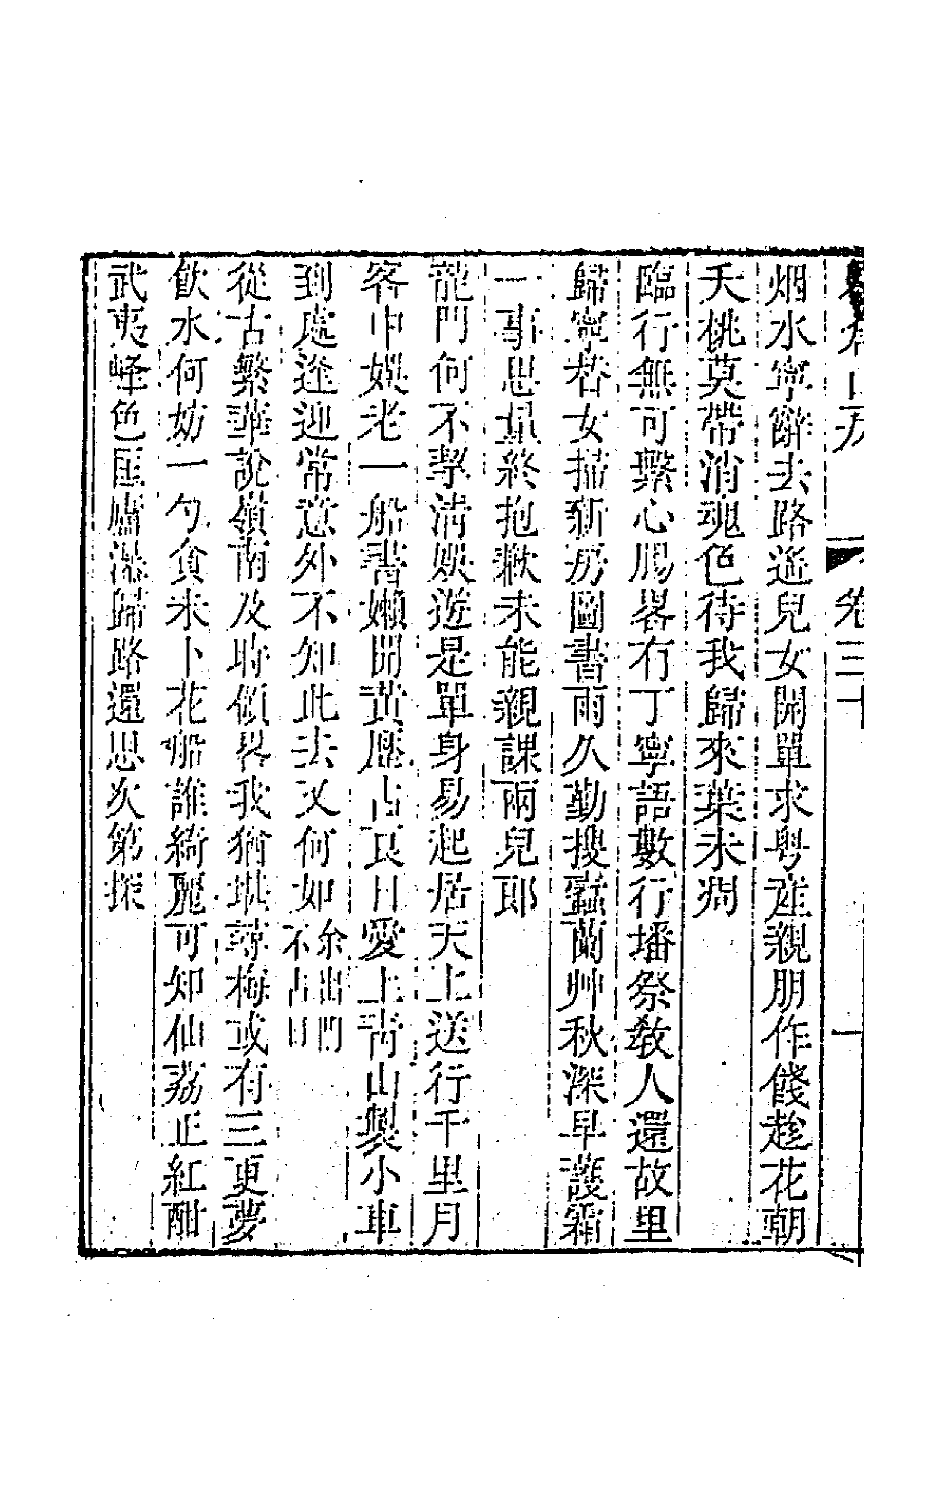 卷三十 一
烟水寧辭去路遥兒女開單求粤産親朋作餞趁花朝
夭桃莫帶消魂色待我歸來葉未凋
臨行無可繫心腸畧有丁寧語數行墦祭教人還故里
歸寧替女掃新房圖書雨久勤搜蠹蘭艸秋深早護霜
一事思量終抱歉未能親課兩兒郎
龍門何不挈淸娛遊是單身易起居天上送行千里月
客中娛老一船書懶開黃歷占良日愛上靑山製小車
到處逢迎常意外不知此去又何如余出門不占日
從古繁華說嶺南及時傾畧我猶堪尋梅或有三更夢
飮水何妨一勺貪米卜花船誰綺麗可知仙荔正紅酣
武夷峰色匡廬瀑歸路還思次第探